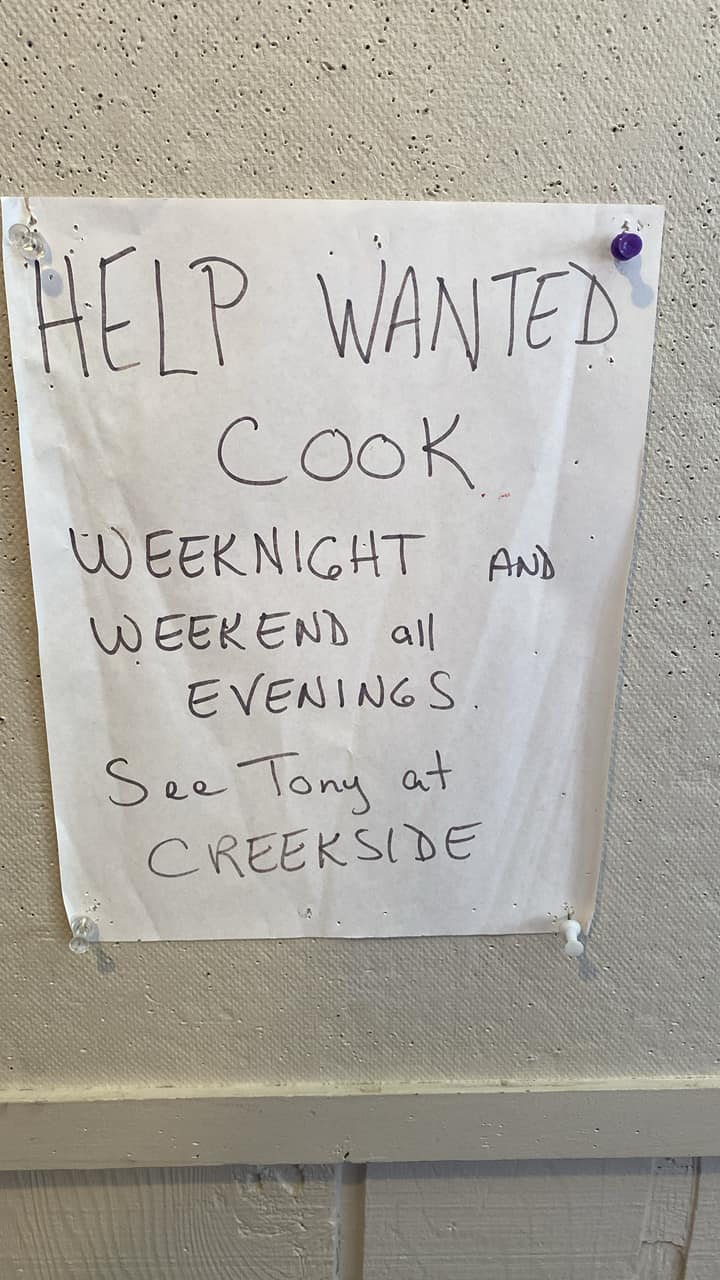 HELP WANTED
COOK
WEEKNIGHT AND
WEEKEND all
EVENINGS.
See Tony at
CREEKSIDE